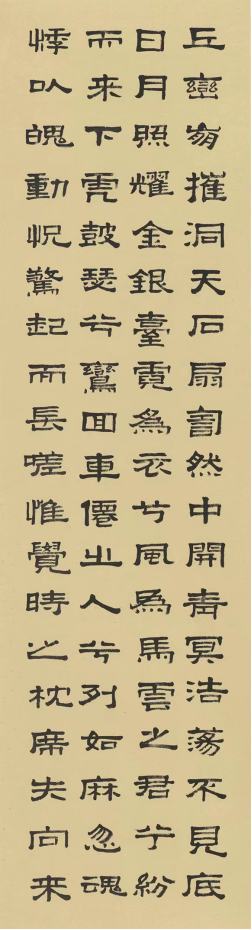 丘巒崩摧洞天石扇訇然中開青冥浩蕩不見底
日月照耀金銀臺霓為衣兮風為馬雲之君兮紛
而来下虎鼓瑟兮鸞回車僊之人兮列如麻忽魂
悸以魄動怳驚起而長嗟惟覺時之枕席失向来